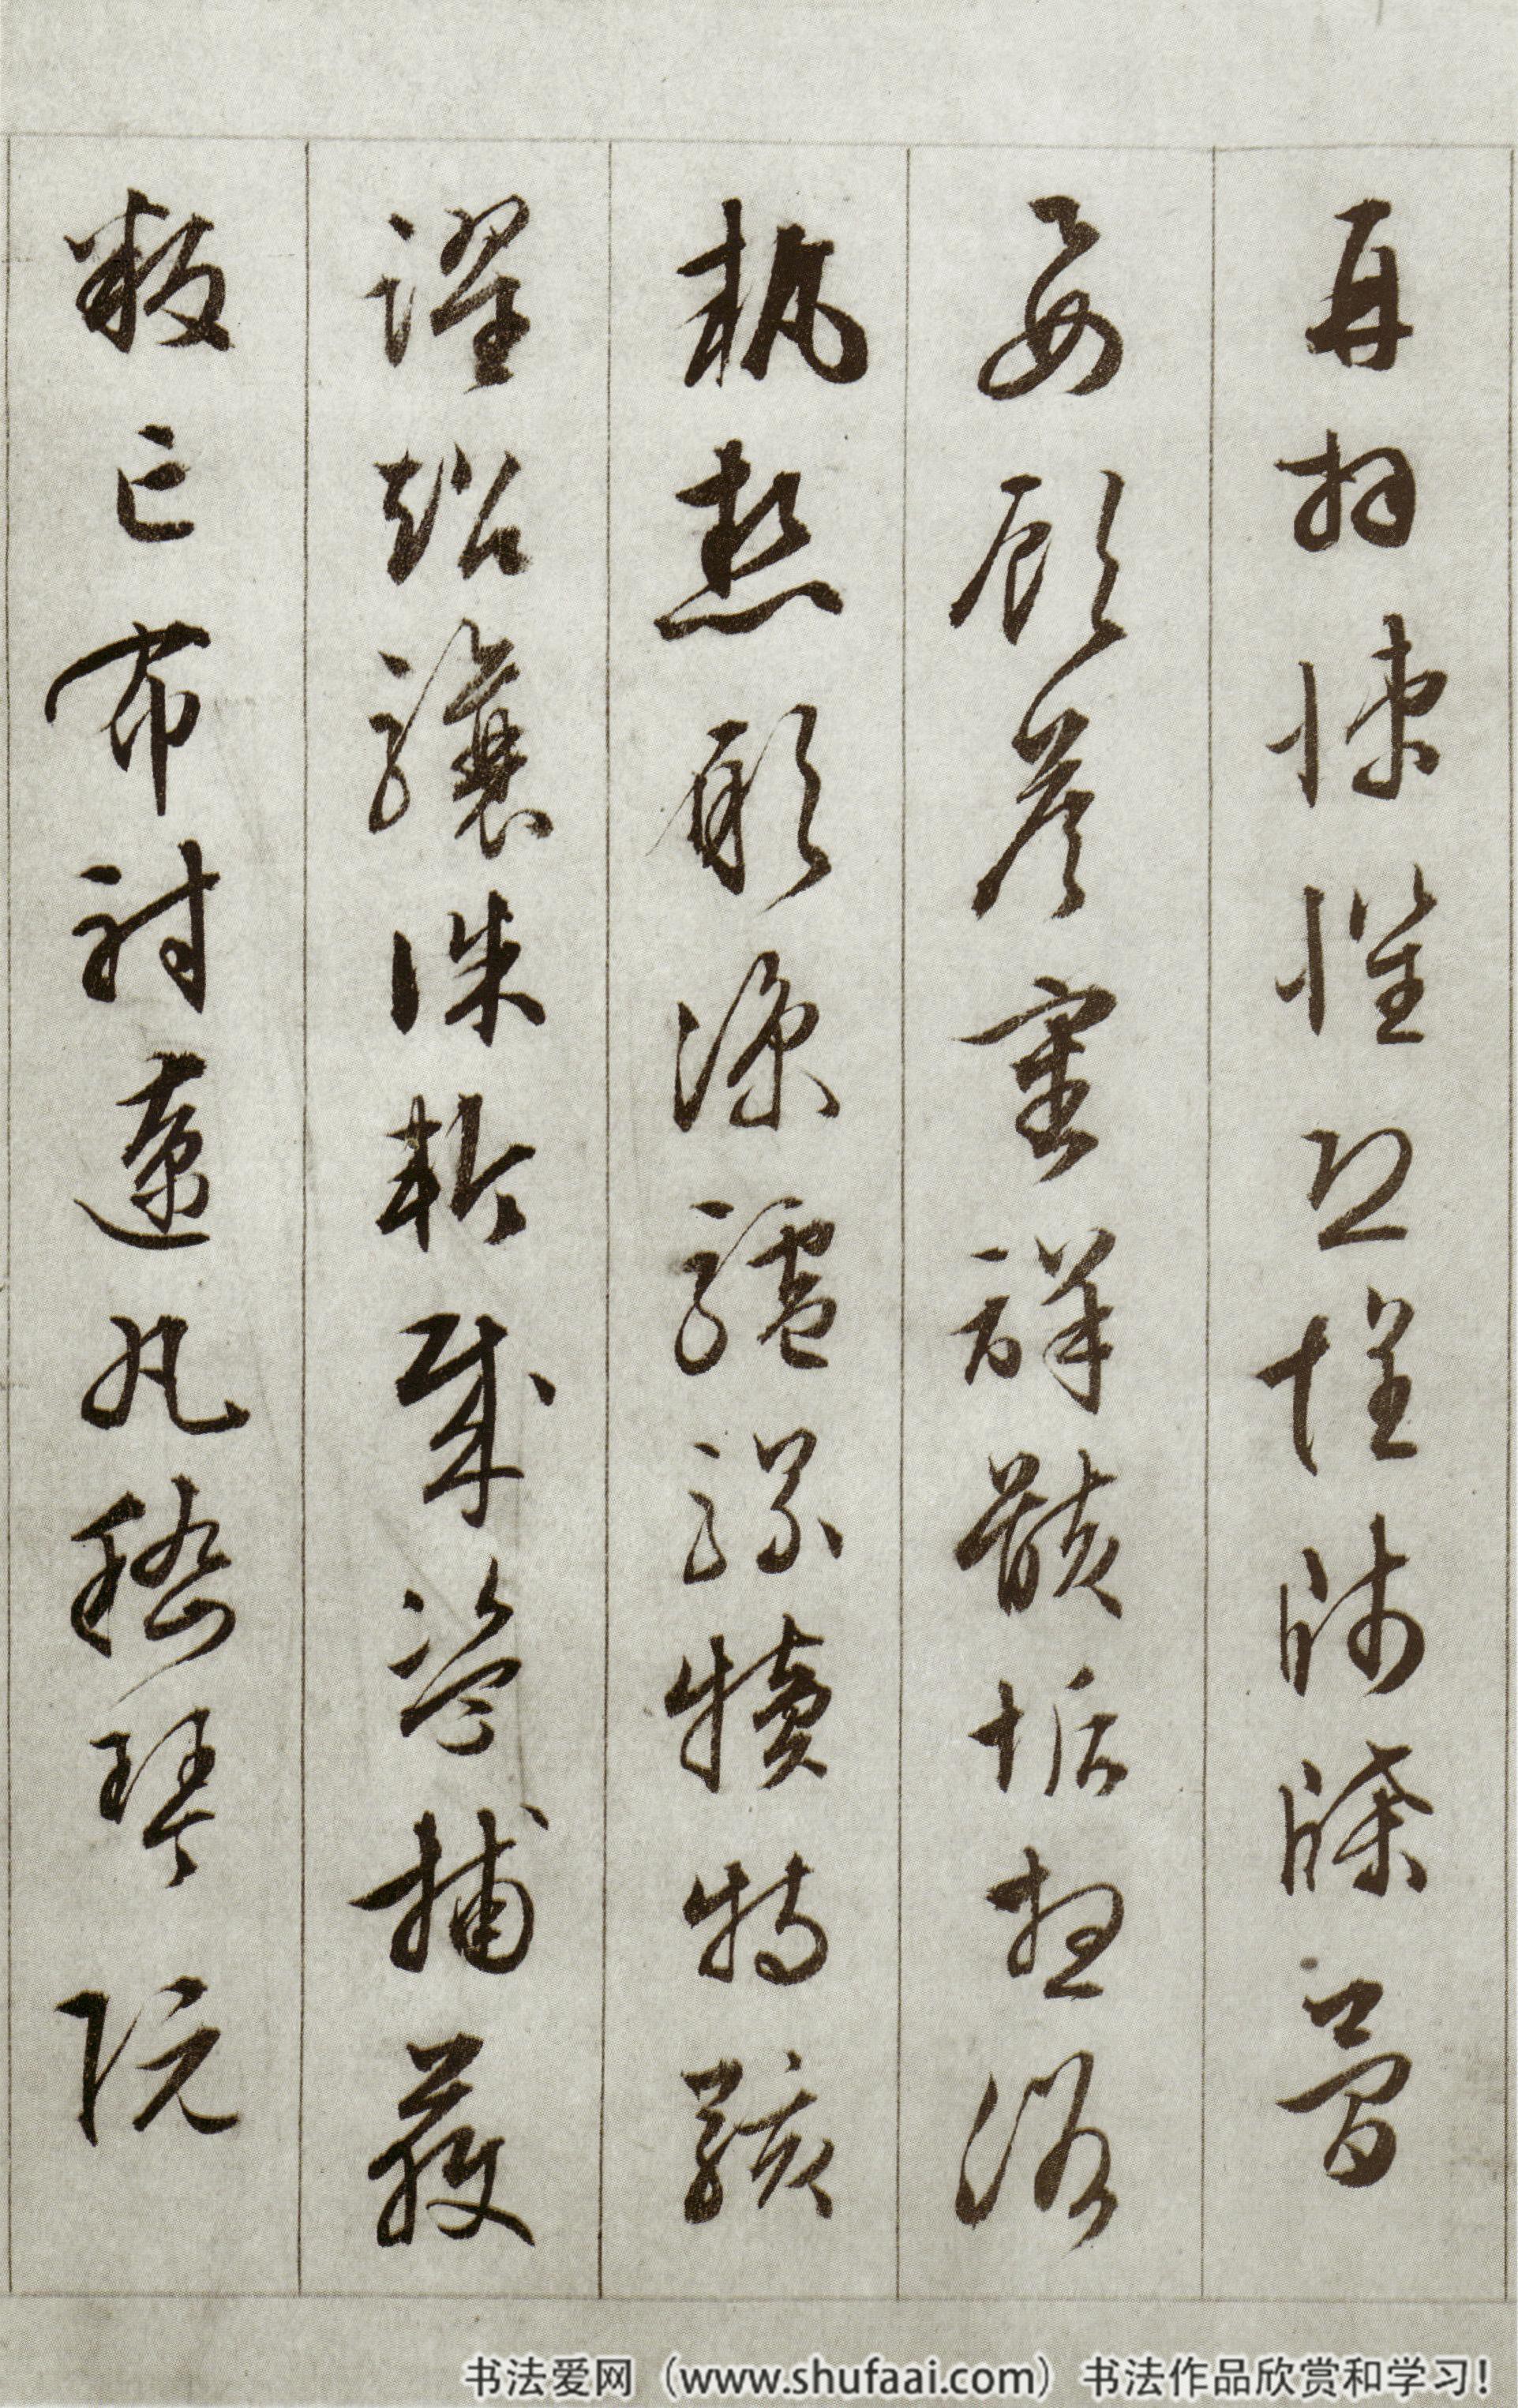 再拜悚懼恐惶牋牒簡
要顧答審詳骸垢想浴
執熱願涼驢騾犢特駭
躍超驤誅斬賊盜捕獲
叛亡布射遼丸嵇琴阮
书法爱网（www.shufaai.com）书法作品欣赏和学习！